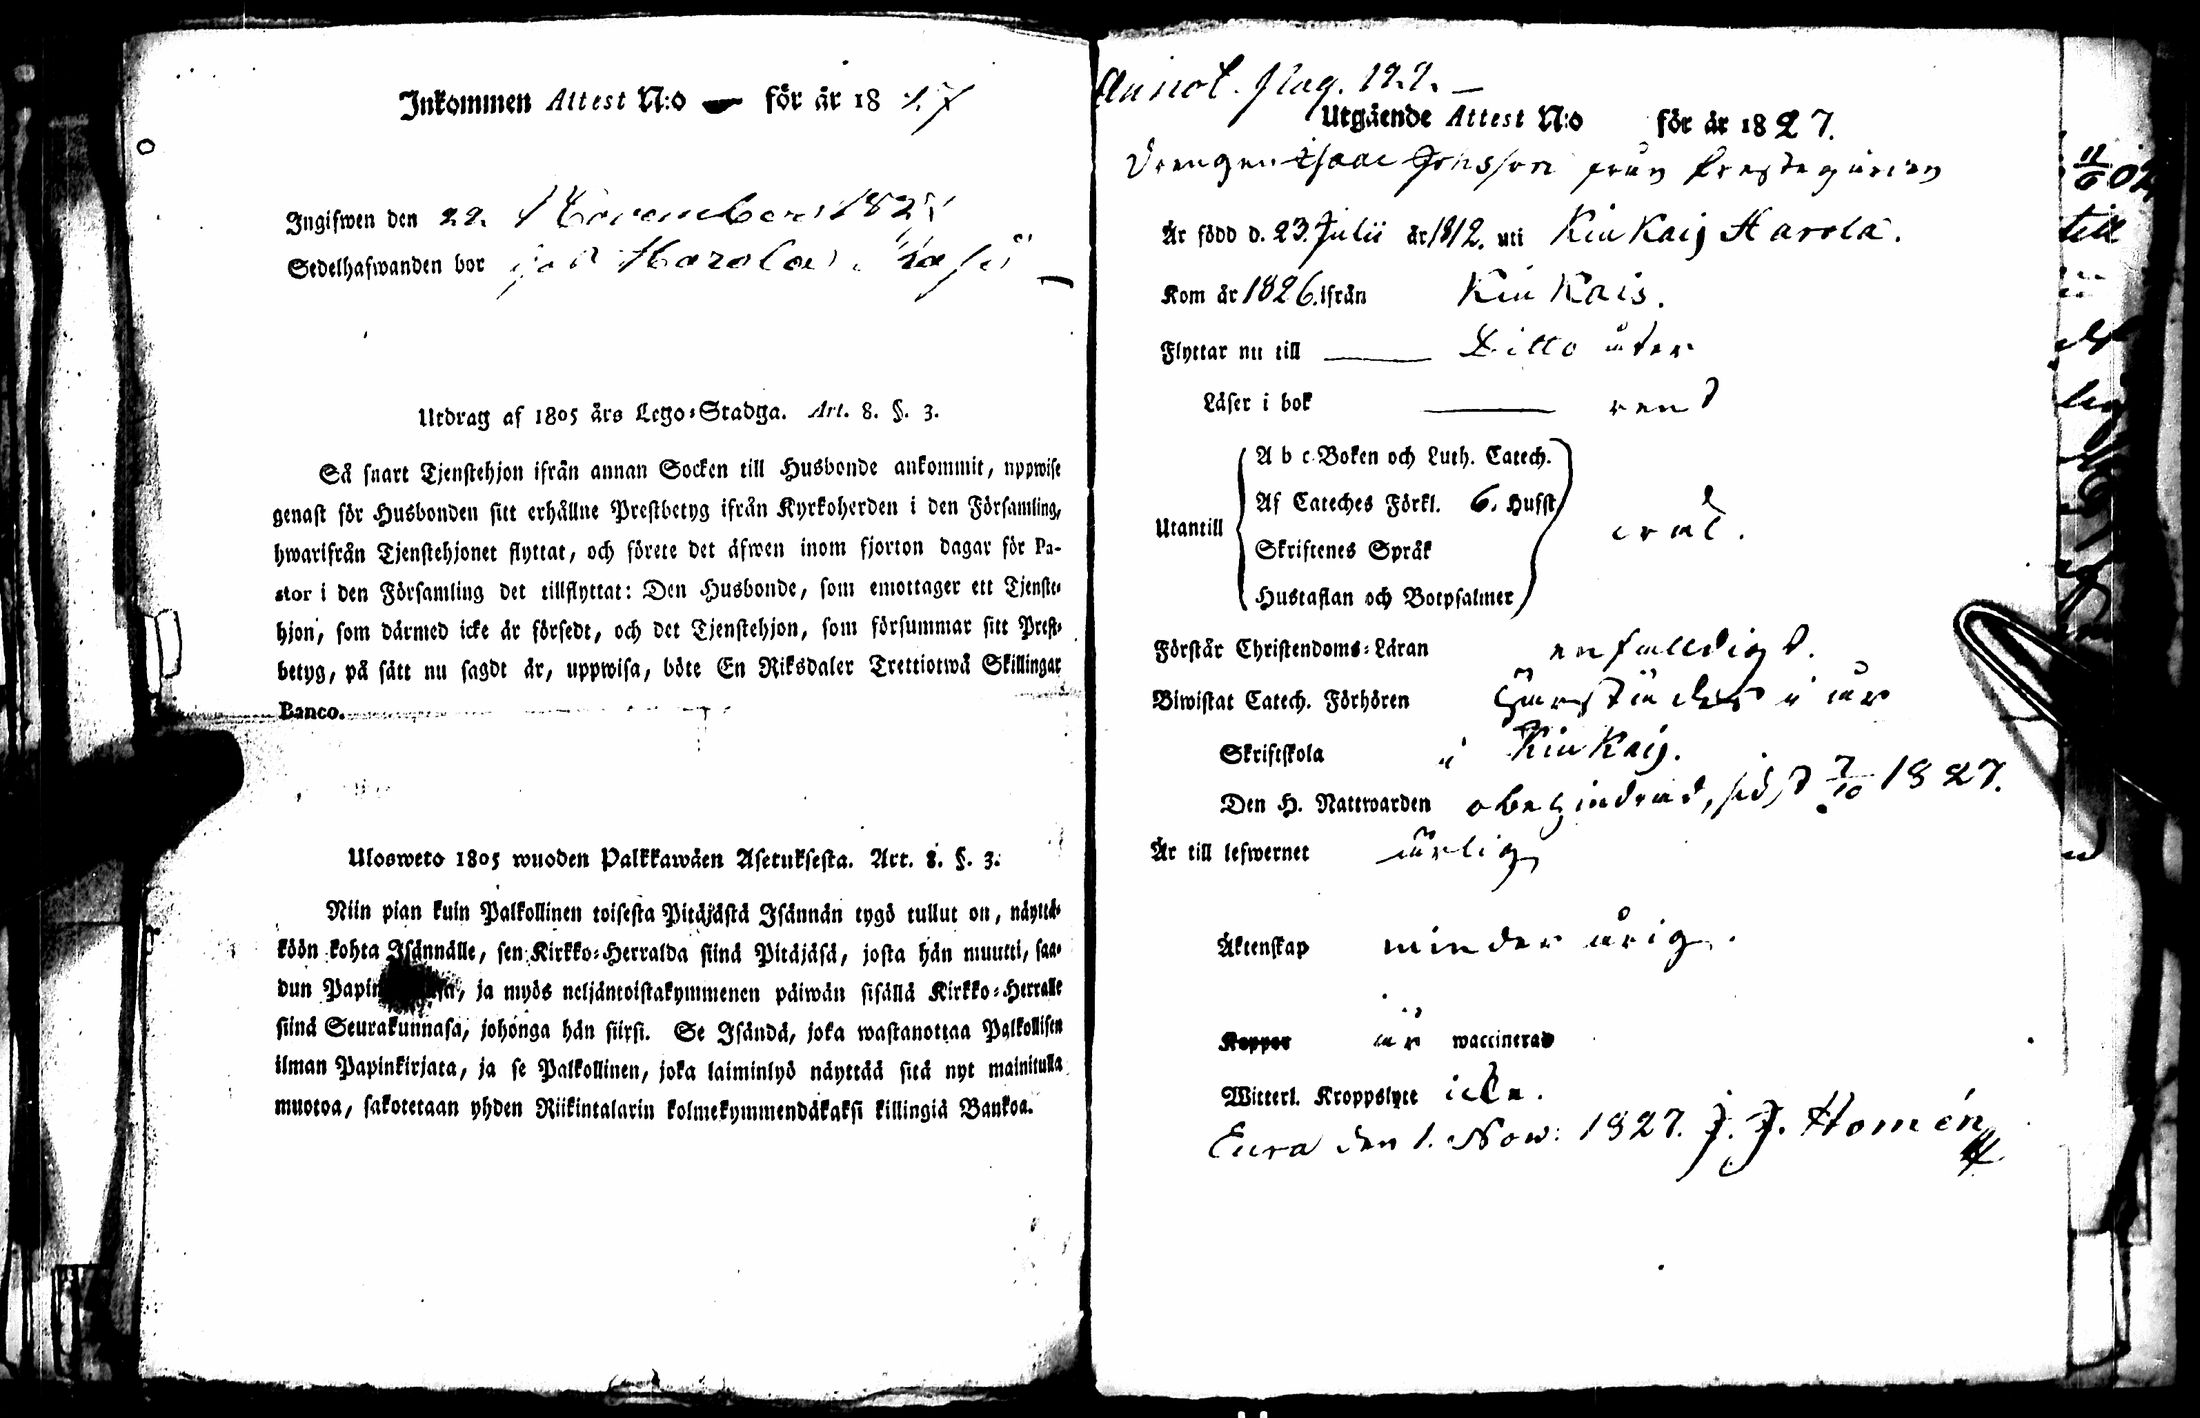 Inkommen Attest N:o för år 18 27
Ingifwen den 22. November 1827
Sedelhafwanden bor på Harola
Utdrag af 1805 års Lego-Stadga. Art. 8. §. 3.
Så snart Tjenstehjon ifrån annan Socken till Husbonde ankommit, uppwise
genast för Husbonden sitt erhållne Prestbetyg ifrån Kyrkoherden i den Församling,
hwarifrån Tjenstehjonet flyttat, och förete det äfwen inom fjorton dagar för Pa-
stor i den Församling det tillflyttat: Den Husbonde, som emottager ett Tjenste-
hjon, som därmed icke är försedt, och det Tjenstehjon, som försummar sitt Prest-
betyg, på sätt nu sagdt är, uppwisa, böte En Riksdaler Trettiotwå Skillingar
Banco.
Ulosweto 1805 wuoden Palkkawäen Asetuksesta. Art. 8. §. 3.
Niin pian kuin Palkollinen toisesta Pitäjästä Isännän tygö tullut on, näyttä-
köön kohta Isännälle, sen Kirkko-Herralda siinä Pitäjäsä, josta hän muutti, saa-
dun Papin, ja myös neljäntoistakymmenen päiwän sisällä Kirkko-Herralle
siinä Seurakunnasa, johonga hän siirsi. Se Isändä, joka wastanottaa Palkollisen
ilman Papinkirjata, ja se Palkollinen, joka laiminlyö näyttää sitä nyt mainitulla
muotoa, sakotetaan yhden Riikintalarin kolmekymmendäkaksi killingiä Bankoa.
Annot. pag. 122.
Utgående Attest N:o för år 1827.
Drengen Isaac Johsson från Prestegården
Är född d. 23. Julii år 1812. uti Kiukais Harola.
Kom år 1826. ifrån Kiukais.
Flyttar nu till Ditto åter
Läser i bok rent
A b c-Boken och Luth. Catech.
Af Cateches Förkl. 6. Hufst.
Utantill
Skriftenes Språk
Hustaflan och Botpsalmer
Förstår Christendoms-Läran enfaldigt.
Biwistat Catech. Förhören härstädes i år
Skriftskola i Kiukais.
Den H. Nattwarden obehindrad, sidst 7/10 1827.
Är till lefwernet ärlig
Äktenskap minder årig.
Koppor är waccinerad
Witterl. Kroppslyte icke.
Eura den 1. Nov: 1827. J. J. Homén
11/6 02
till